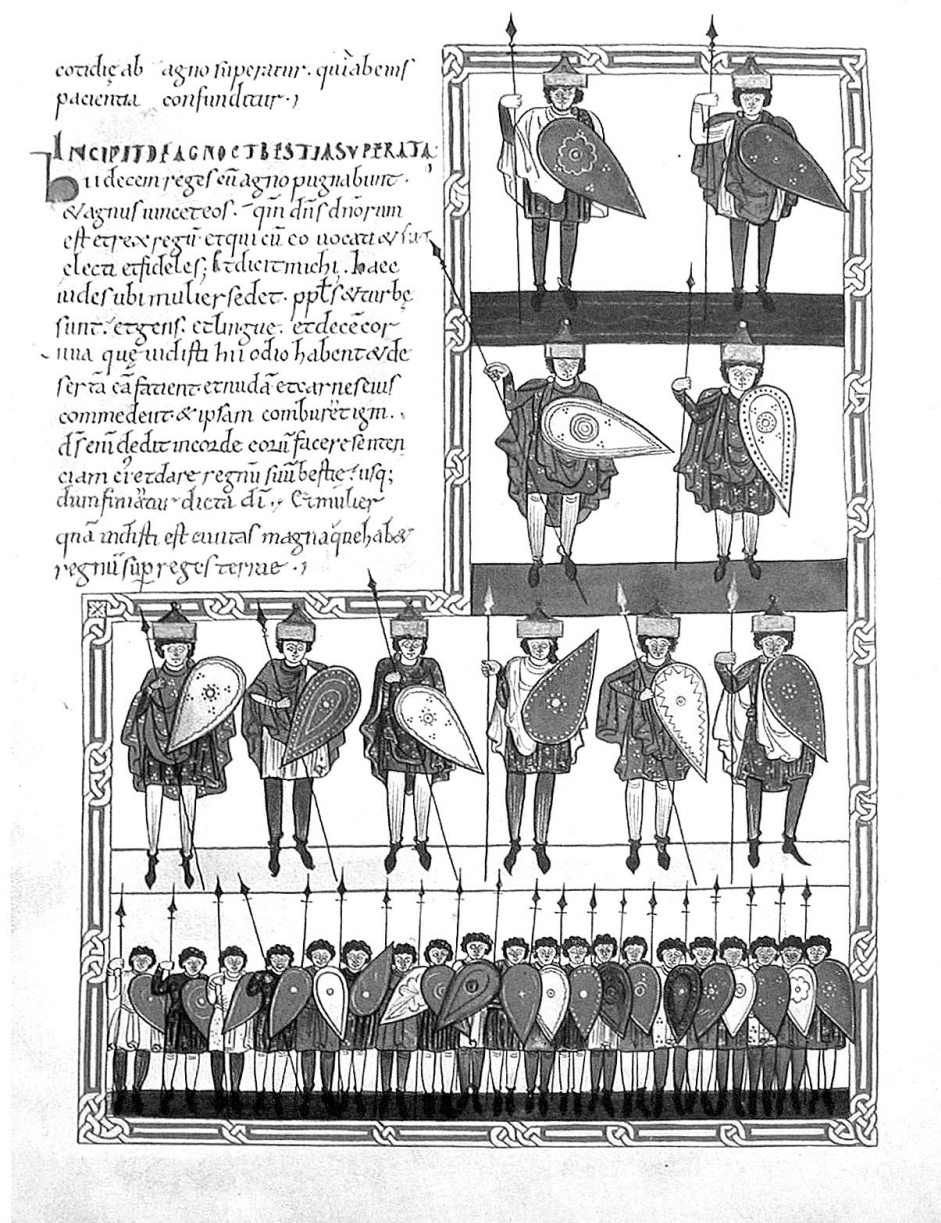 cotidię ab agno superatur. quiabeius
pacientia confunditur.
INCIPIT DE AGNO ET BESTIA SUPERATA
Hii decem reges cū agno pugnabunt.
& agnus uincet eos. qm̄ dn̄s dn̄orum
est et rex regū. et qui cū eo uocati &
electi et fideles; Et dicit michi. haec
uides ubi mulier sedet. & turbę
sunt. et gens. et lingue. et decē cor
nua quę uidisti hii odio habent & de
serta eā facient et nudā et carnes eius
commedent. & ipsam comburēt igni.
ds enī dedit in corde eorū facere senten
ciam et dare regnū suū bestię usq;
dum finiatur dicta dī. Et mulier
quā uidisti est ciuitas magna que hab&
regnū sup reges terrae.